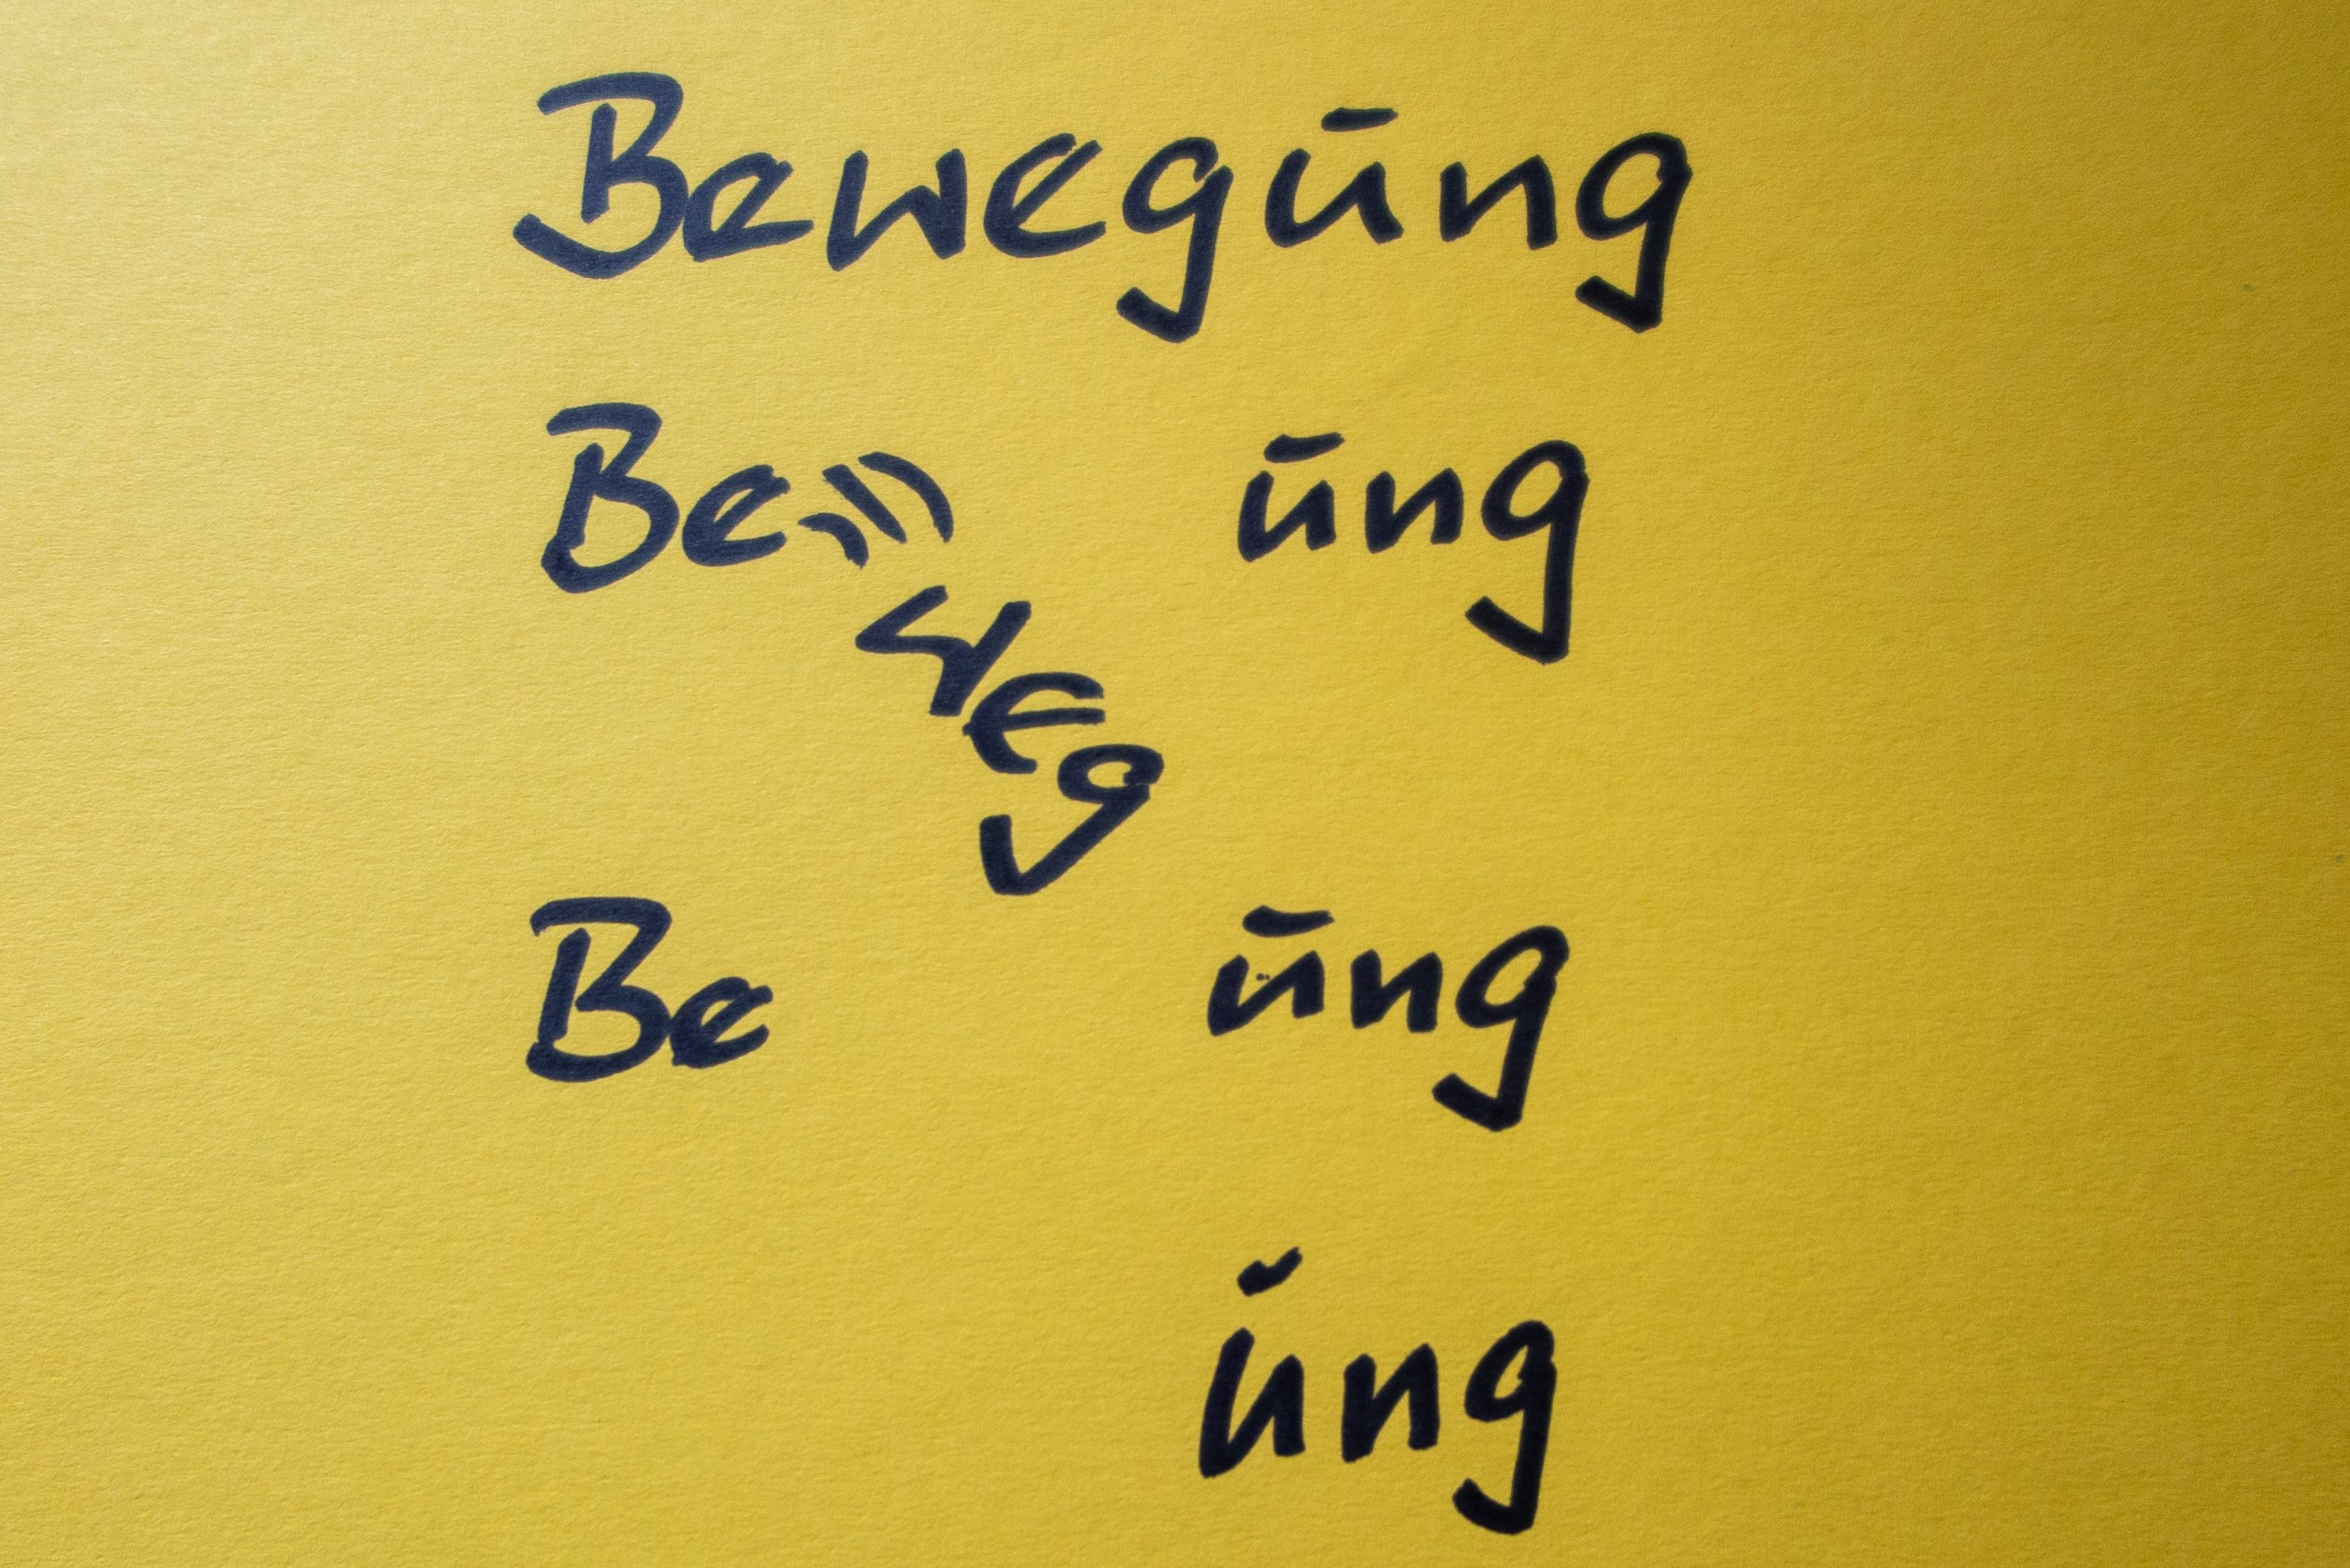 Bewegūng
Be ūng
weg
Be ūng
ŭng